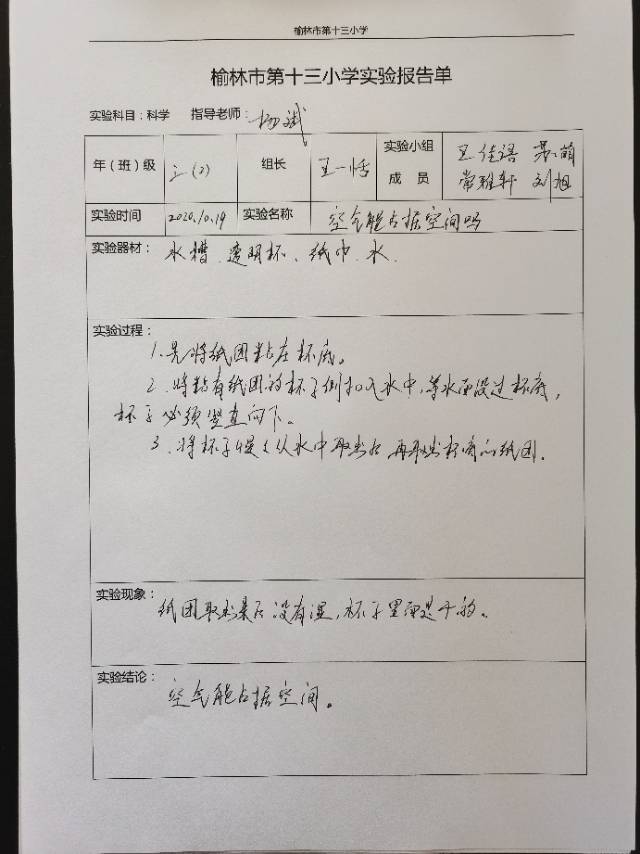 榆林市第十三小学
榆林市第十三小学实验报告单
实验科目：科学 指导老师： 杨斌
年（班）级 三（2） 组长 王一恬 实验小组成员 王佳语 苏萌
常雅轩 刘旭
实验时间 2020.10.19 实验名称 空气能占据空间吗
实验器材： 水槽、透明杯、纸巾、水.
实验过程：
1.先将纸团粘在杯底。
2.将粘有纸团的杯子倒扣入水中,等水面没过杯底,
杯子必须竖直向下。
3.将杯子慢慢从水中取出后 再取出杯内的纸团.
实验现象：
纸团取出来后没有湿,杯子里面是干的。
实验结论：
空气能占据空间。